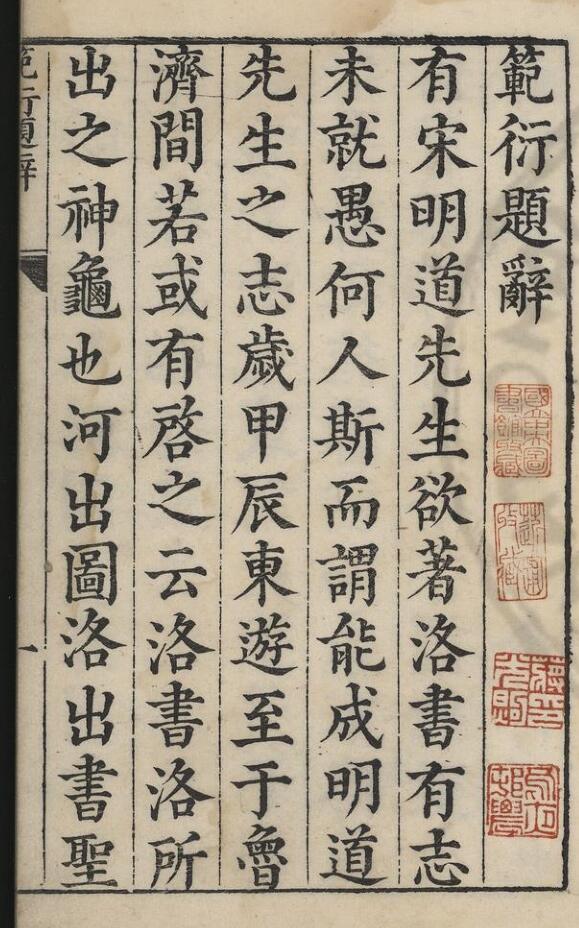 範衍題辭
有宋明道先生欲著洛書有志
未就愚何人斯而謂能成明道
先生之志歲甲辰東遊至于魯
濟間若或有啓之云洛書洛所
出之神龜也河出圖洛出書聖
範衍題辭
一